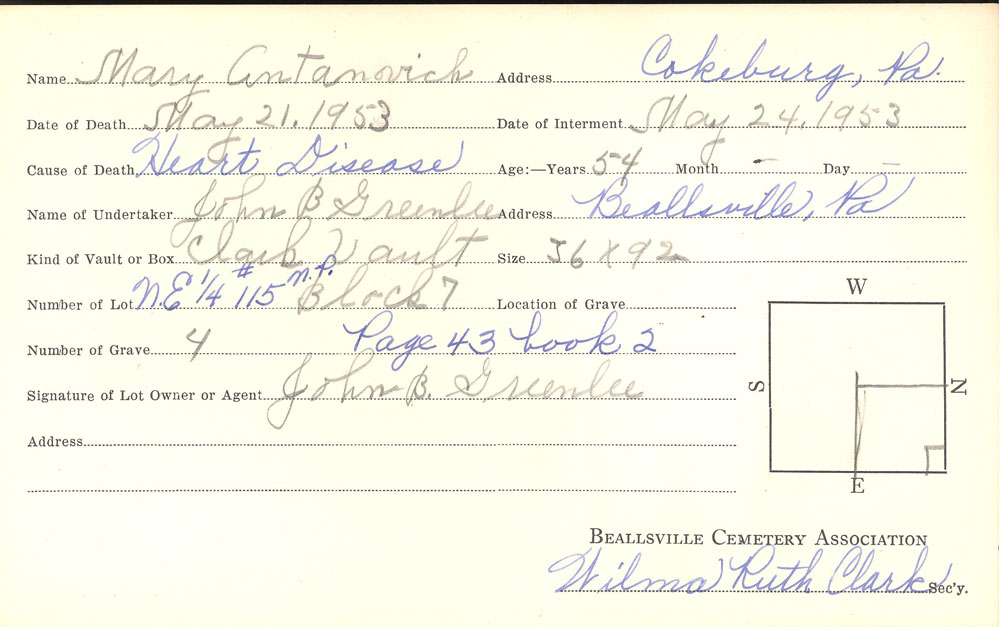 Name Mary Antanovich Address Cokeburg, Pa.
Date of Death May 21, 1953 Date of Interment May 24, 1953
Cause of Death Heart Disease Age:—Years 54 Month - Day -
Name of Undertaker John B Greenlee Address Beallsville, Pa
Kind of Vault or Box Clark Vault Size 36 X 92
Number of Lot N.E 1/4 # 115 N.P. Block 7 Location of Grave
W
Number of Grave 4 Page 43 book 2
S N
Signature of Lot Owner or Agent John B. Greenlee
Address
E
BEALLSVILLE CEMETERY ASSOCIATION
Wilma Ruth Clark Sec'y.